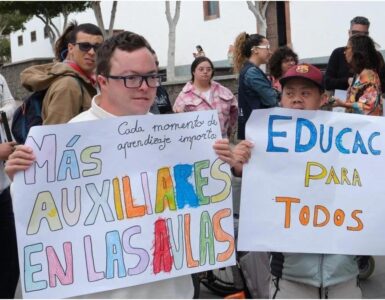 Cada momento de
aprendizaje importa
MÁS
AUXILIARES
EN LAS AULAS
EDUCAC
PARA
TODOS